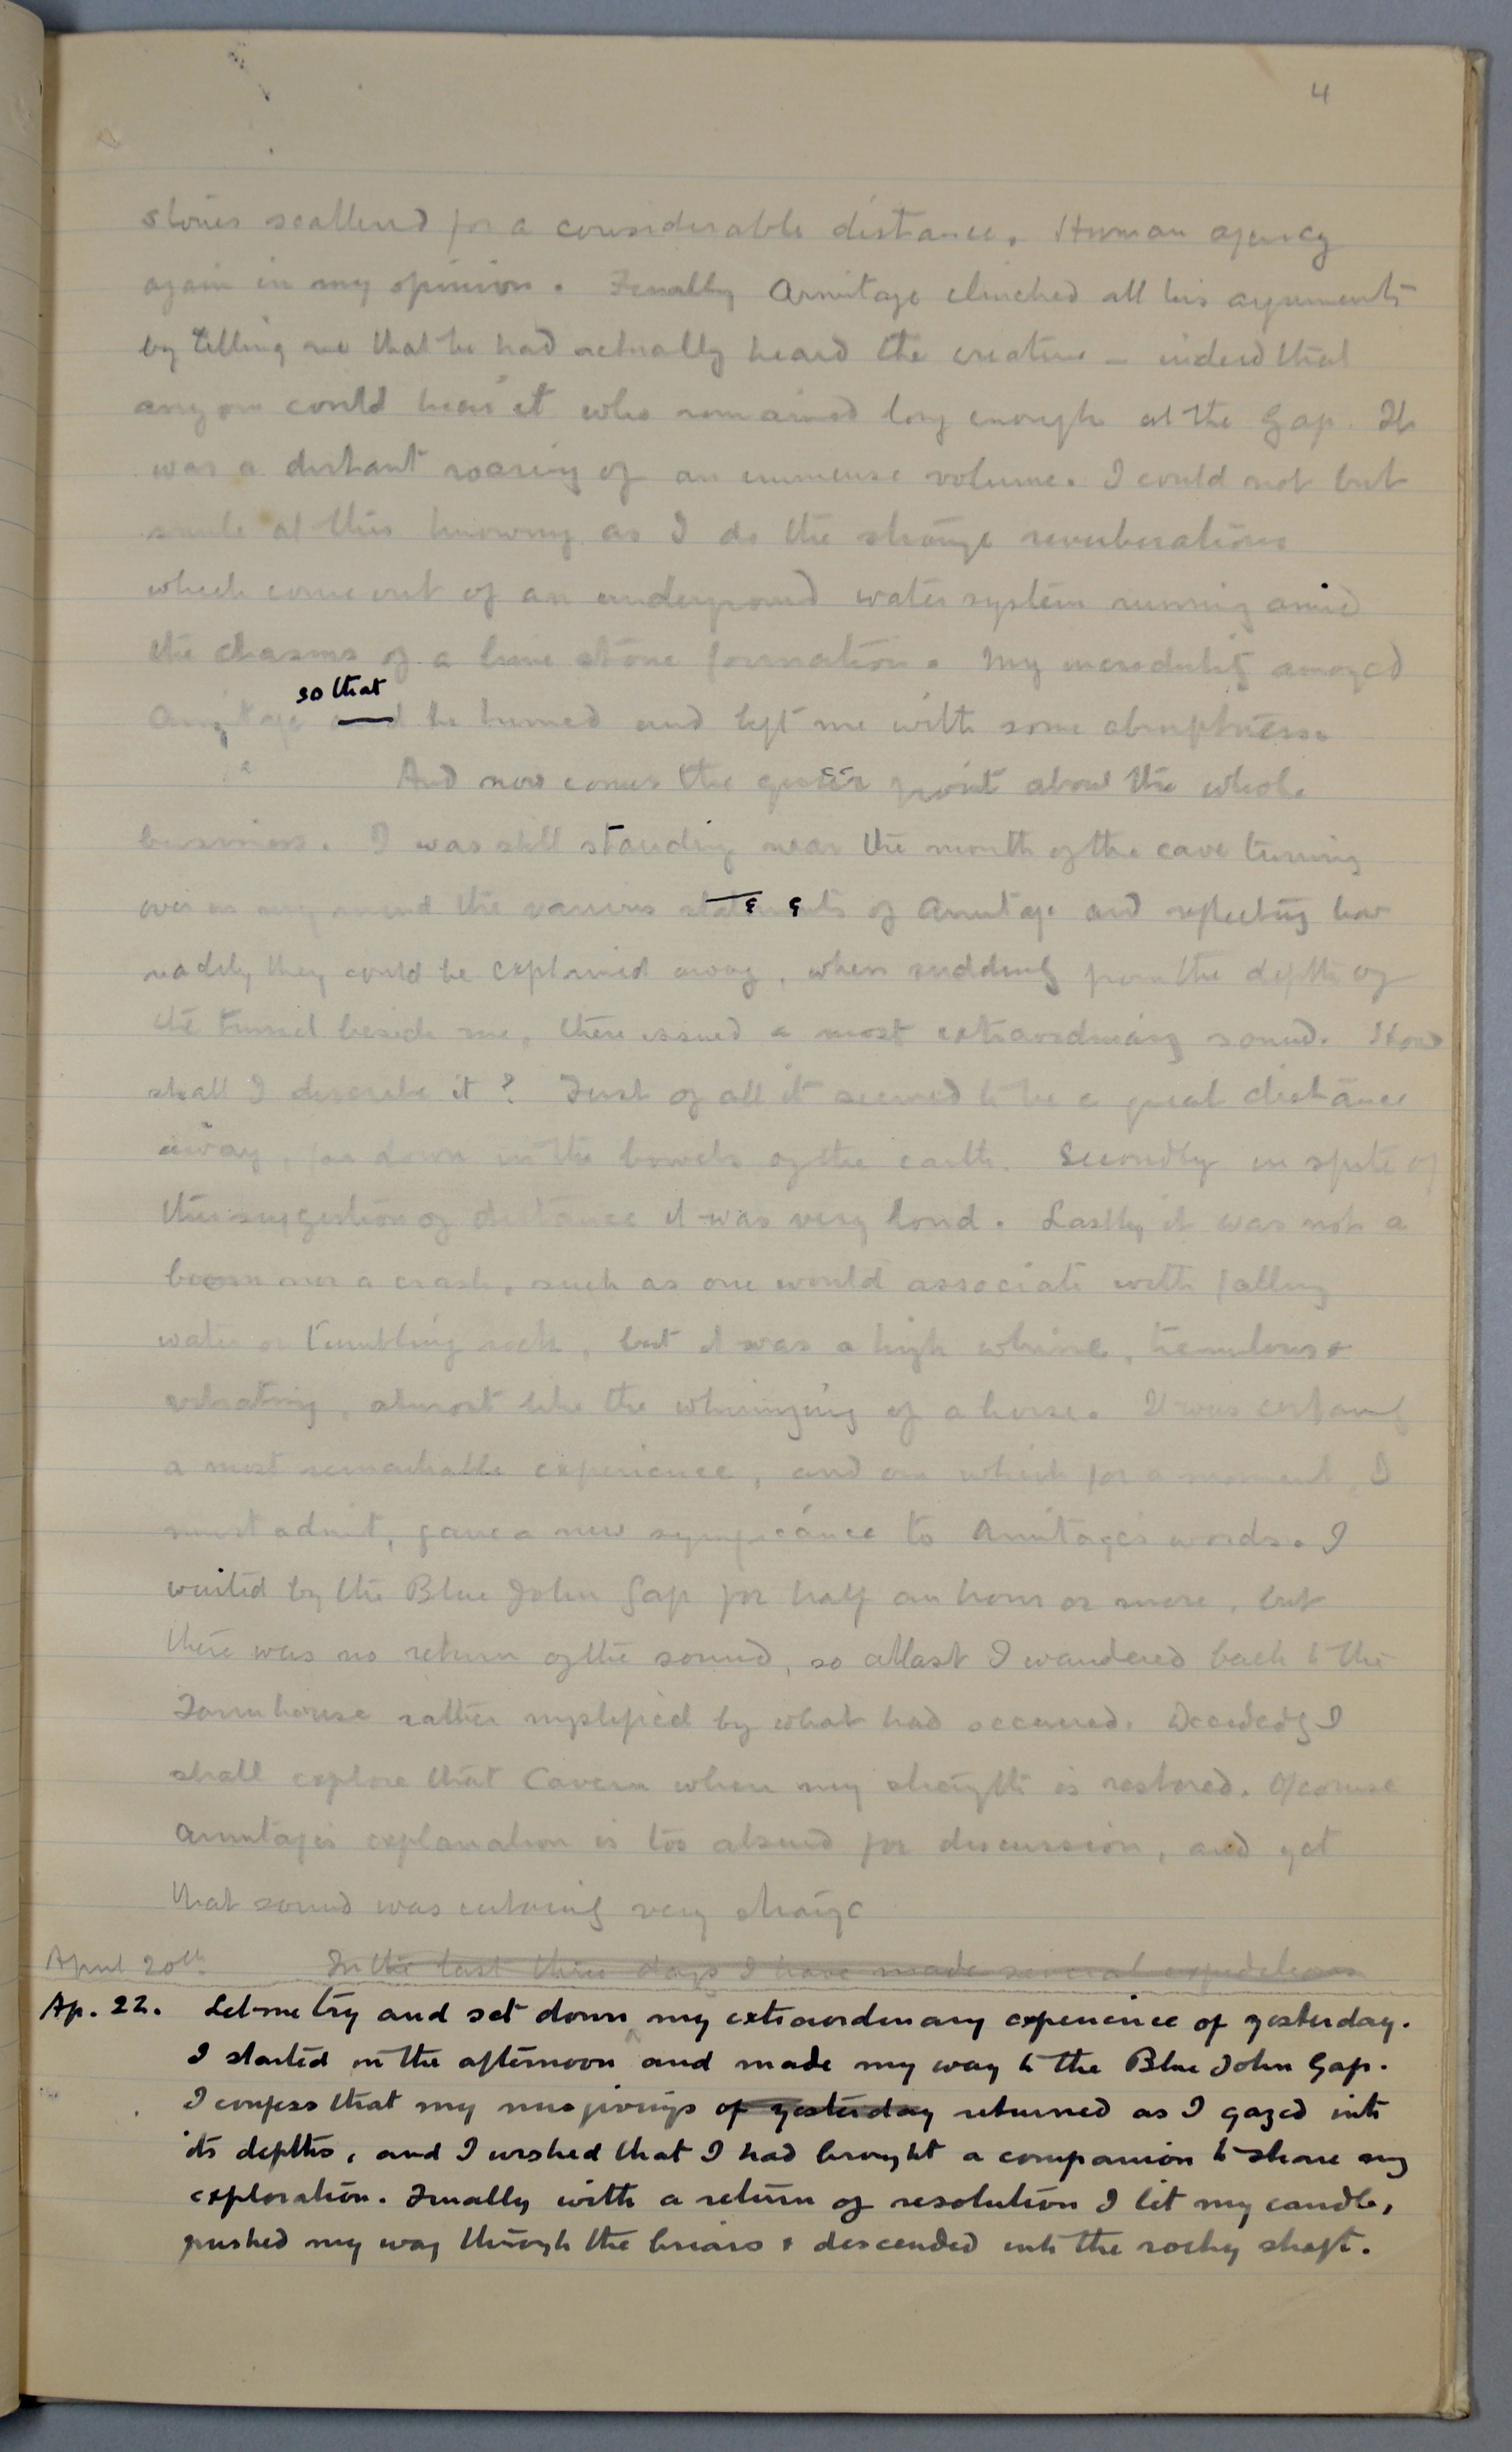 4
stones scattered for a considerable distance. Human agency
again in my opinion. Finally Armitage clinched all his arguments
by telling me that he had actually heard the creature – indeed that
anyone could hear it who remained long enough at the Gap. It
was a distant roaring of an immense volume. I could not but
smile at this knowing as I do the strange reverberations
which come out of an underground water system running amid
the chasms of a lime stone formation. My incredulity annoyed
so that
Armitage and he turned and left me with some abruptness.
And now comes the queer point about the whole
business. I was still standing near the mouth of the cave turning
over in my mind the various statements of Armitage and reflecting how
readily they could be explained away, when suddenly from the depth of
the tunnel beside me, there issued a most extraordinary sound. How
shall I describe it? First of all it seemed to be a great distance
away, far down in the bowels of the earth. Secondly in spite of
this suggestion of distance it was very loud. Lastly it was not a
boom nor a crash, such as one would associate with falling
water or tumbling rock, but it was a high whine, tremulous &
vibrating, almost like the whinnying of a horse. It was certainly
a most remarkable experience, and one which for a moment, I
must admit, gave a new significance to Armitage's words. I
waited by the Blue John Gap for half an hour or more, but
there was no return of the sound, so at last I wandered back to the
Farmhouse rather mystified by what had occurred. Decidedly I
shall explore that Cavern when my strength is restored. Of course
Armitage's explanation is too absurd for discussion, and yet
that sound was certainly very strange
April 20th. In the last three days I have made several expeditions
Ap. 22. Let me try and set down my extraordinary experience of yesterday.
I started in the afternoon and made my way to the Blue John Gap.
I confess that my misgivings of yesterday returned as I gazed into
its depths, and I wished that I had brought a companion to share my
exploration. Finally with a return of resolution I lit my candle,
pushed my way through the briars & descended into the rocky shaft.